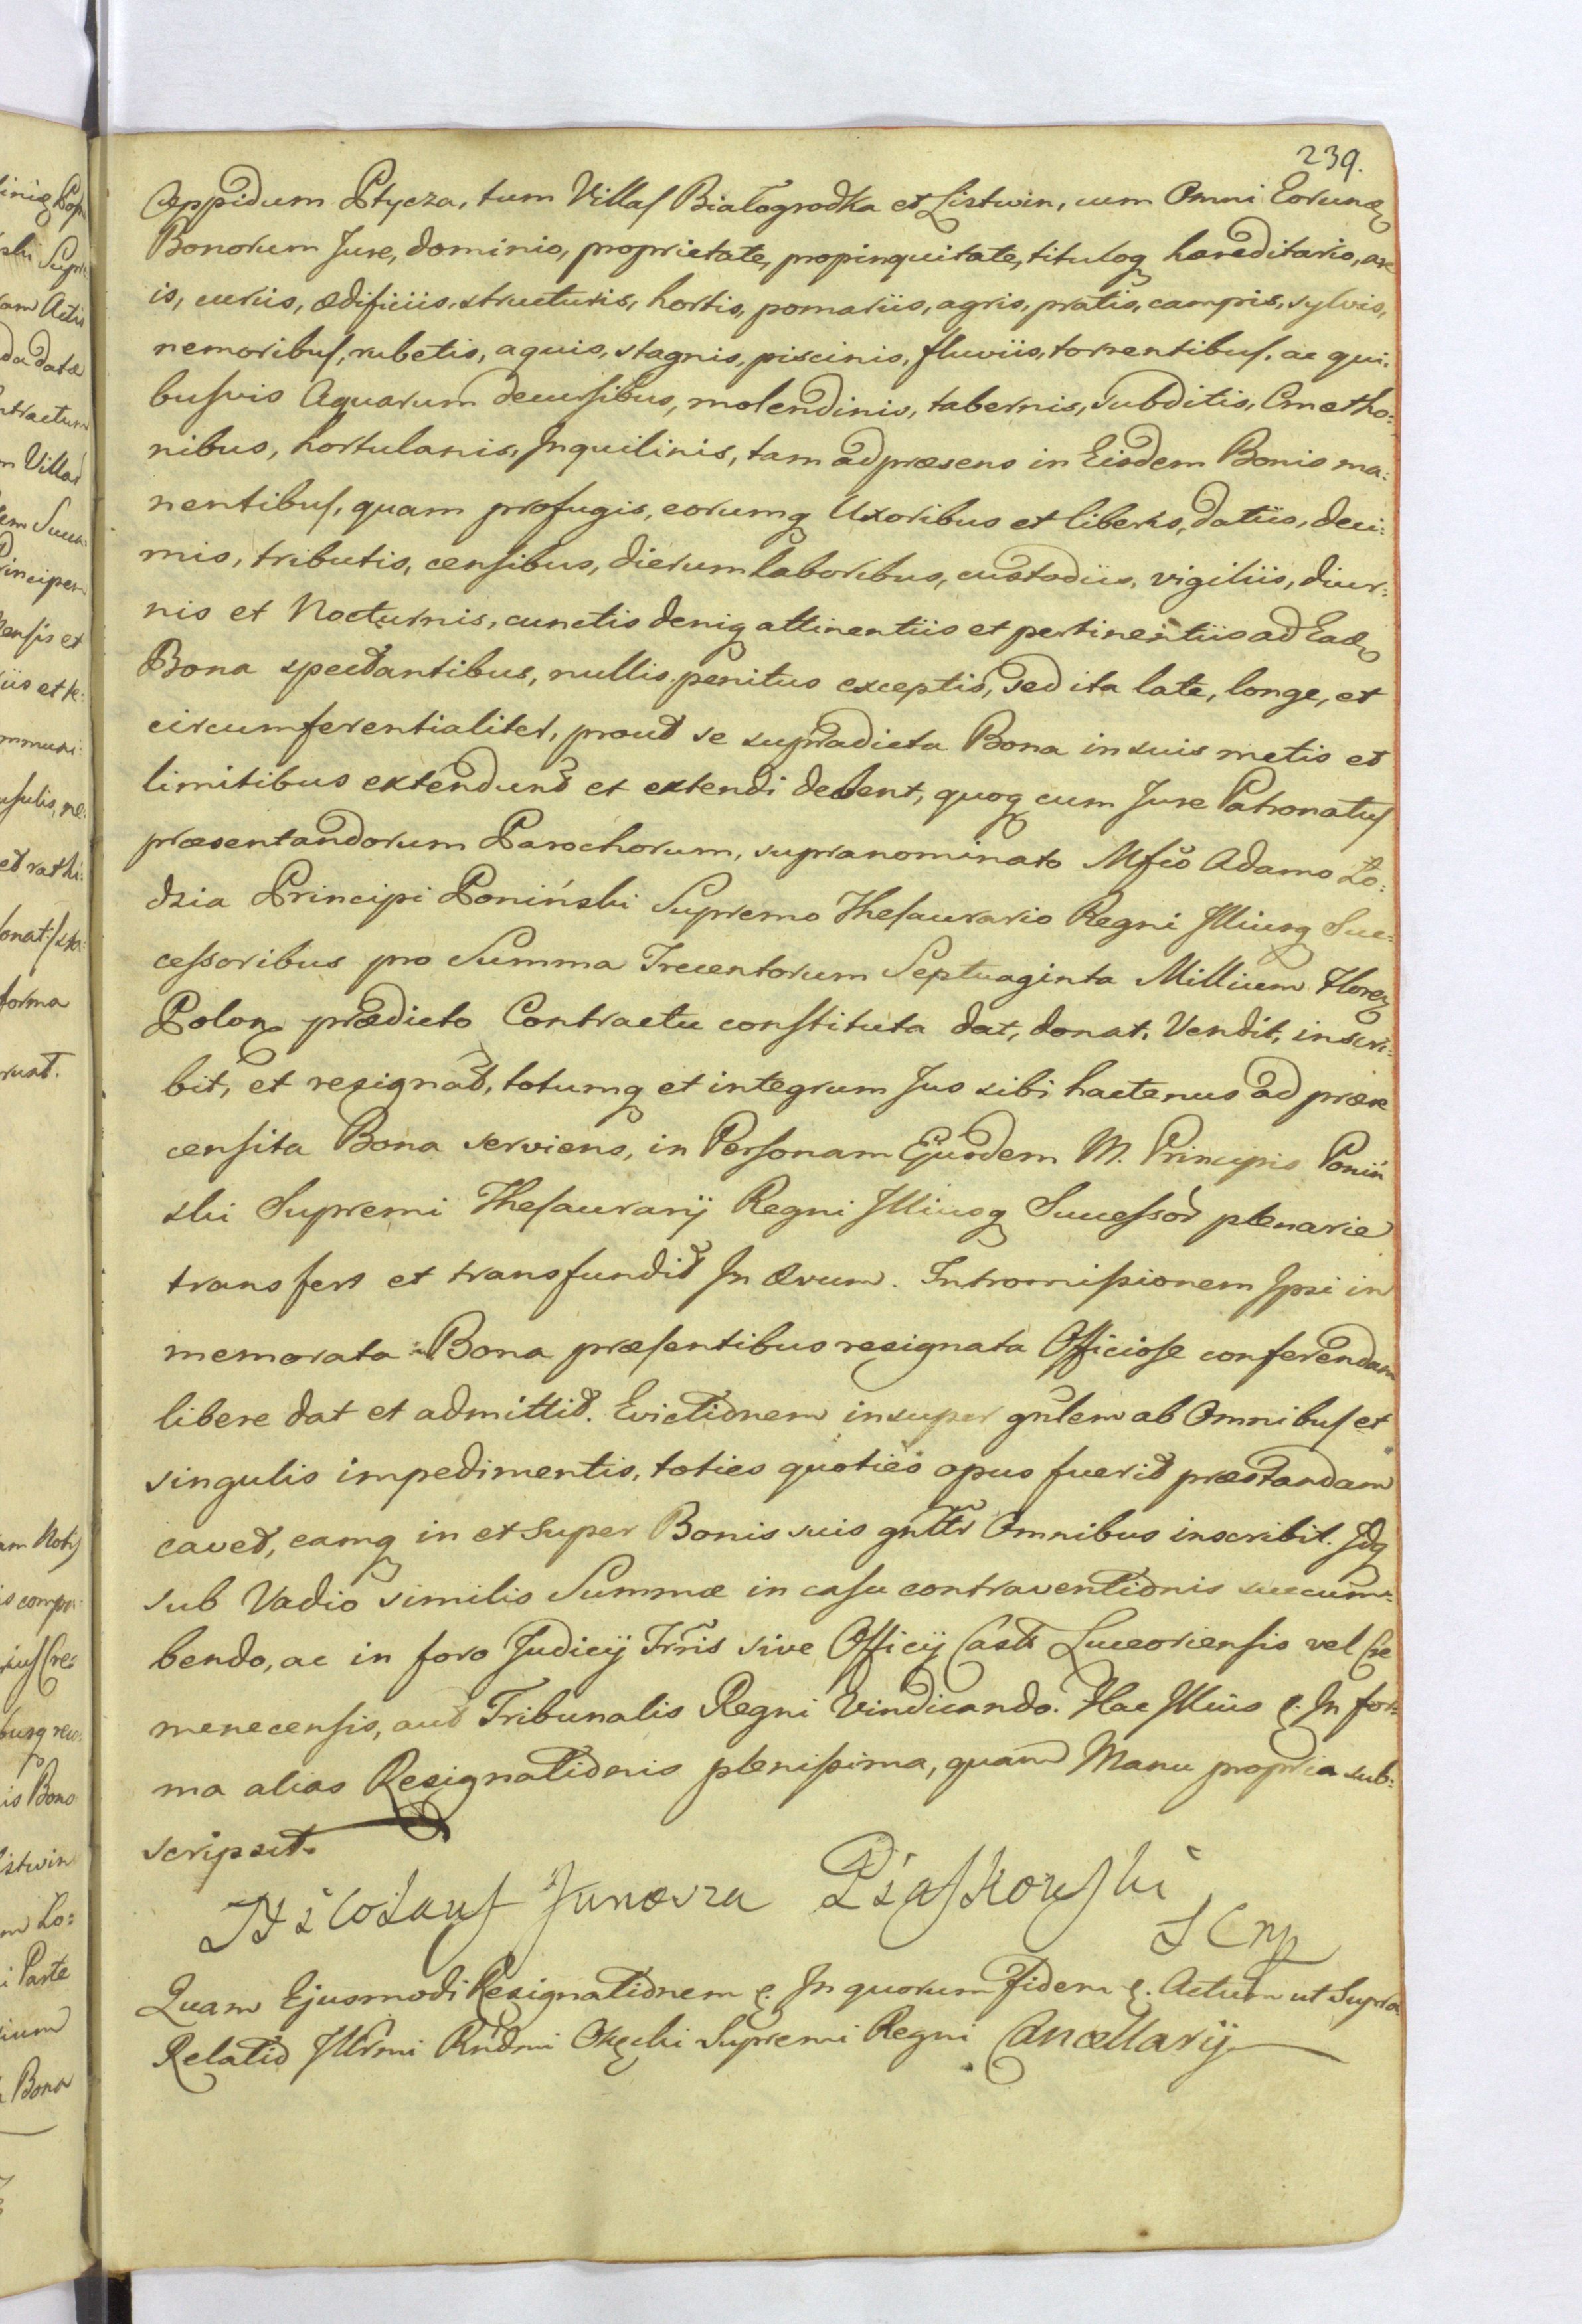 239.
Oppidum Ptycza, tum Villas Białogrodka et Listwin, cum Omni Eorundę
Bonorum Jure, dominio, proprietate, propinquitate, tituloq hæreditario, are
is, curiis, ædificiis, structuris, hortis, pomariis, agris, pratis, campis, sylvis,
nemoribus, rubetis, aquis, stagnis, piscinis, fluviis, torrentibus, ac qui:
busvis Aquarum decursibus, molendinis, tabernis, subditis, Cmetho:
nibus, hortulanis, Inquilinis, tam ad præsens in Eisdem Bonis ma:
nentibus, quam profugis, eorumq Uxoribus et liberis, datiis, deci:
mis, tributis, censibus, dierum laboribus, custodiis, vigiliis, diur:
nis et Nocturnis, cunctis deniq attinentiis et pertinentiis ad Eadę
Bona spectantibus, nullis penitus exceptis, sed ita late, longe, et
circumferentialiter, prout se supradicta Bona in suis metis et
limitibus extendunt et extendi debent, quoq cum Jure Patronatus
præsentandorum Parochorum, supranominato Mfco Adamo Lo:
dzia Principi Poniński Supremo Thesaurario Regni Illiusq Suc:
cessoribus pro Summa Trecentorum Septuaginta Millium Floreñ
Polon prædicto Contractu constituta dat, donat, Vendit, inscri:
bit, et resignat, totumq et integrum Jus sibi hactenus ad prære
censita Bona serviens, in Personam Ejusdem M. Principis Poniń
ski Supremi Thesaurarij Regni Illiusq Successor plenarie
transfert et transfundit In ævum. Intromissionem Ipsi in
memorata Bona præsentibus resignata Officiose conferendam
libere dat et admittit. Evictionem insuper gnlem ab Omnibus et
singulis impedimentis, toties quoties opus fuerit præstandam
cavet, eamq in et super Bonis suis gnltr Omnibus inscribit. Idq
sub Vadio similis Summæ in casu contraventionis succum:
bendo, ac in foro Judicij Trris sive Officij Castr Luceoriensis vel Cre
menecensis, aut Tribunalis Regni Vindicando. Hac Illius &. In for:
ma alias Resignationis plenissima, quam Manu propria sub:
scripsit.
Mikołay Junosza Piaskowski
Quam Ejusmodi Resignationem &. In quorum Fidem &. Actum ut Supra
Relatio Illrmi Rndmi Okęcki Supremi Regni Cancellarij